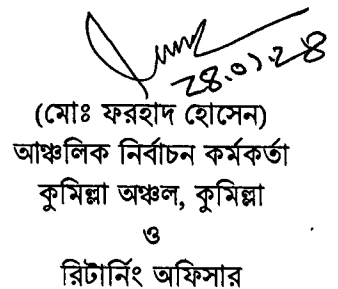 ২৪.০১.২৪
(মোঃ ফরহাদ হোসেন)
আঞ্চলিক নির্বাচন কর্মকর্তা
কুমিল্লা অঞ্চল, কুমিল্লা
ও
রিটার্নিং অফিসার